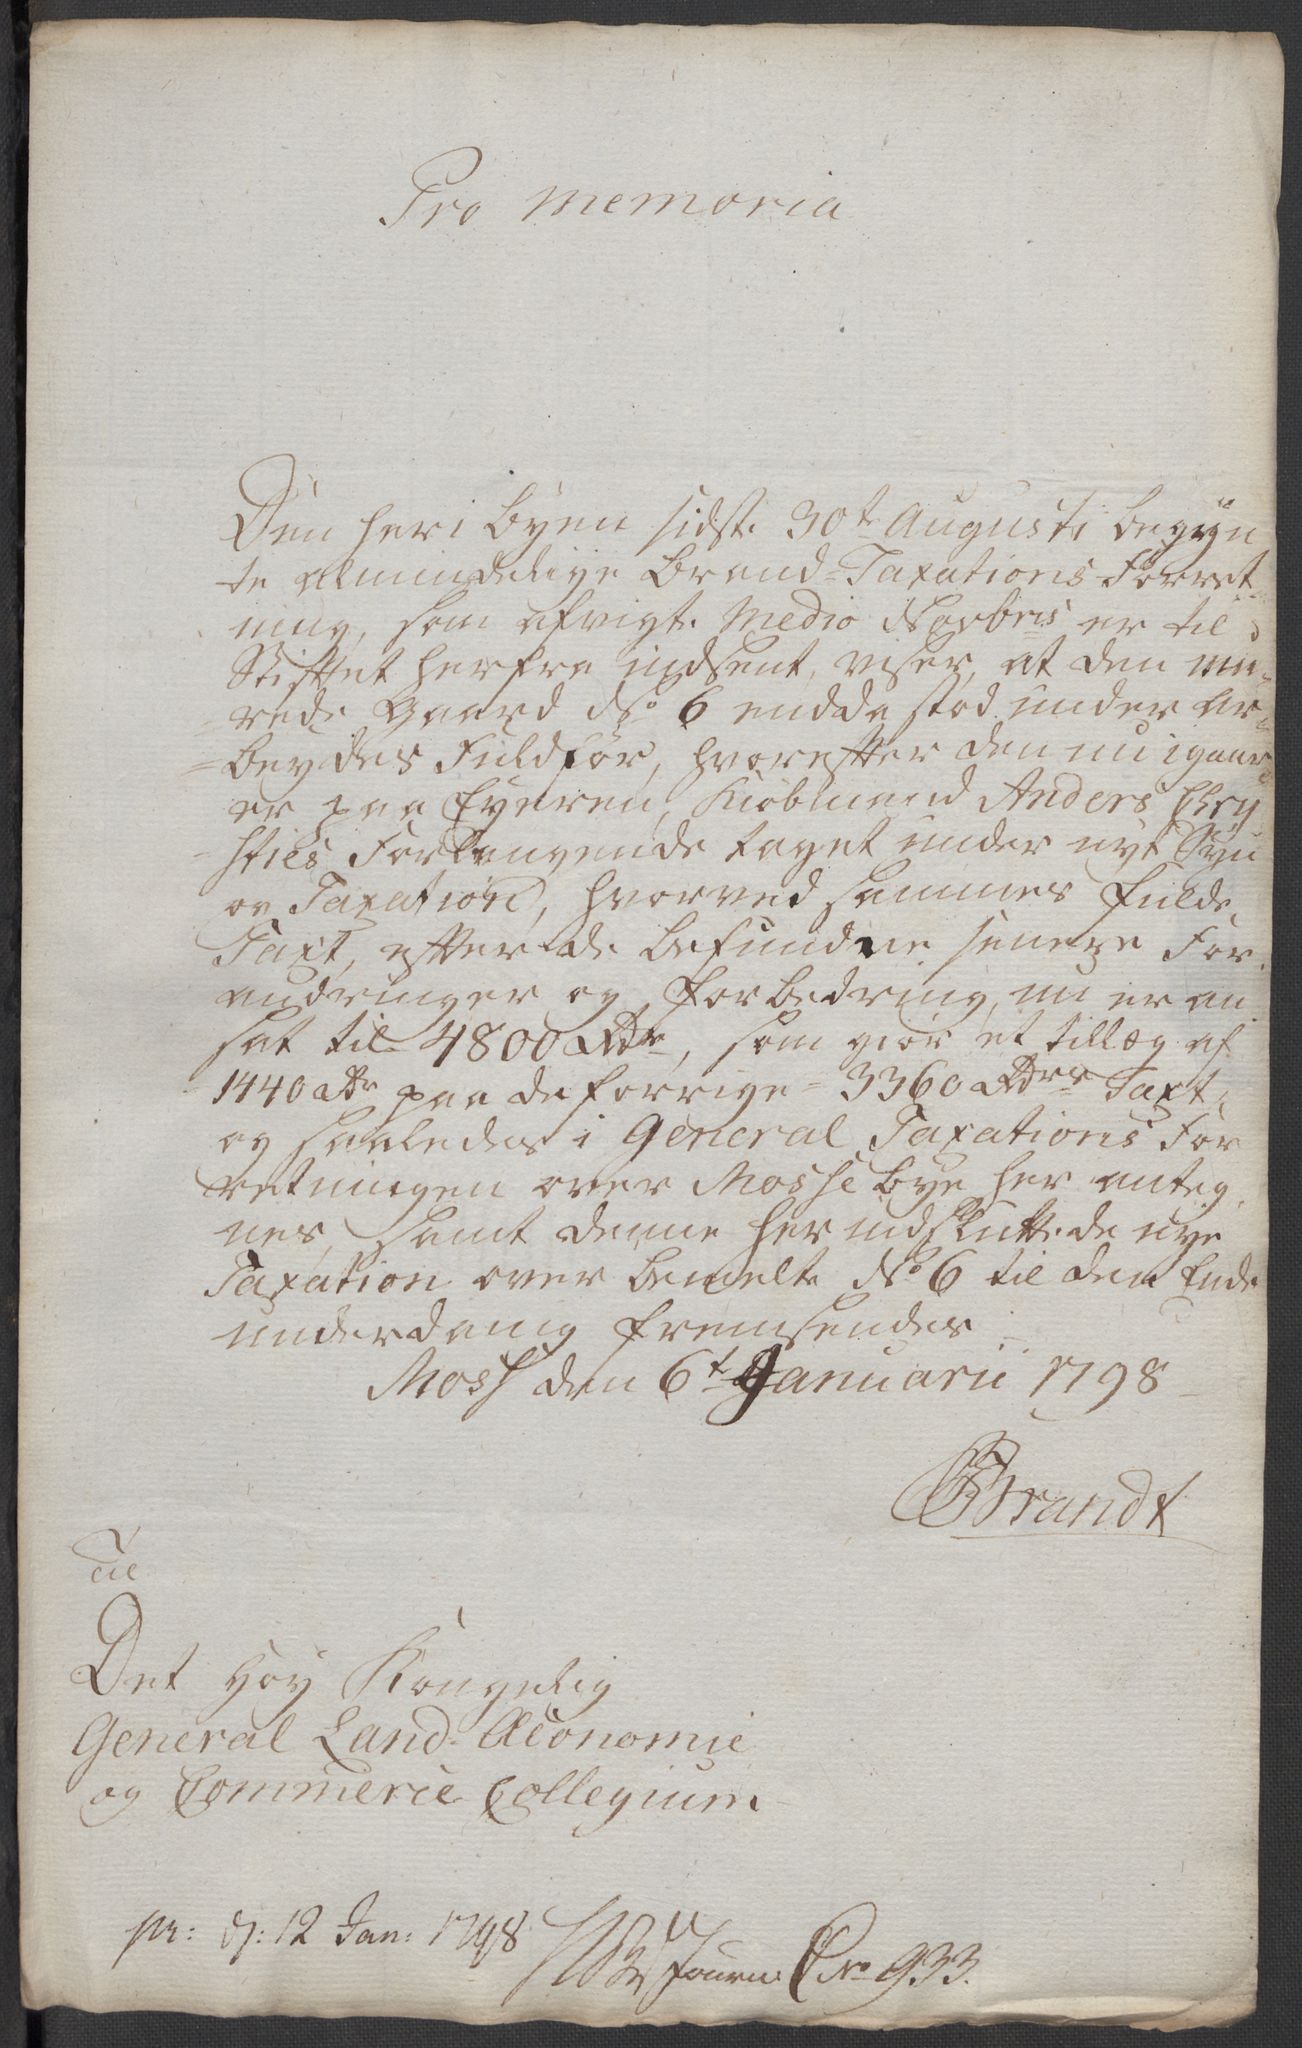 Pro Memoria
Den her i Byen sidst. 30te Augusti begyn
te almindelige Brand-Taxations-Forret-
ning, som afvigt. Medio Novbris er til
Stiftet herfra indsent, viser, at den mu-
rede Gaard No 6 endda stod under Ar-
beydes Fuldför, hvorefter den nu igaar
er paa Eyeren, Kiöbmand Anders Chry
sties Forlangende taget under nyt Syn
og Taxation, hvorved sammes fulde
Taxt, efter de befundne senere For
andringer og Forbedring, nu er an
sat til 4800 Rdr, som giör et tillæg af
1440 Rdr paa de forrige 3360 Rdrs Taxt,
og saaledes i General Taxations For
retningen over Mosse Bye her anteg
nes, samt denne her indsluttede nye
Taxation over bemelte No 6 til den Ende
underdanig fremsendes
Moss den 6te Januarii 1798
Brandt
Til
Det Höy Kongelig
General Land-Oeconomie
og Commerce Collegium.
pr: d: 12 Jan: 1798 Journ: No 933.